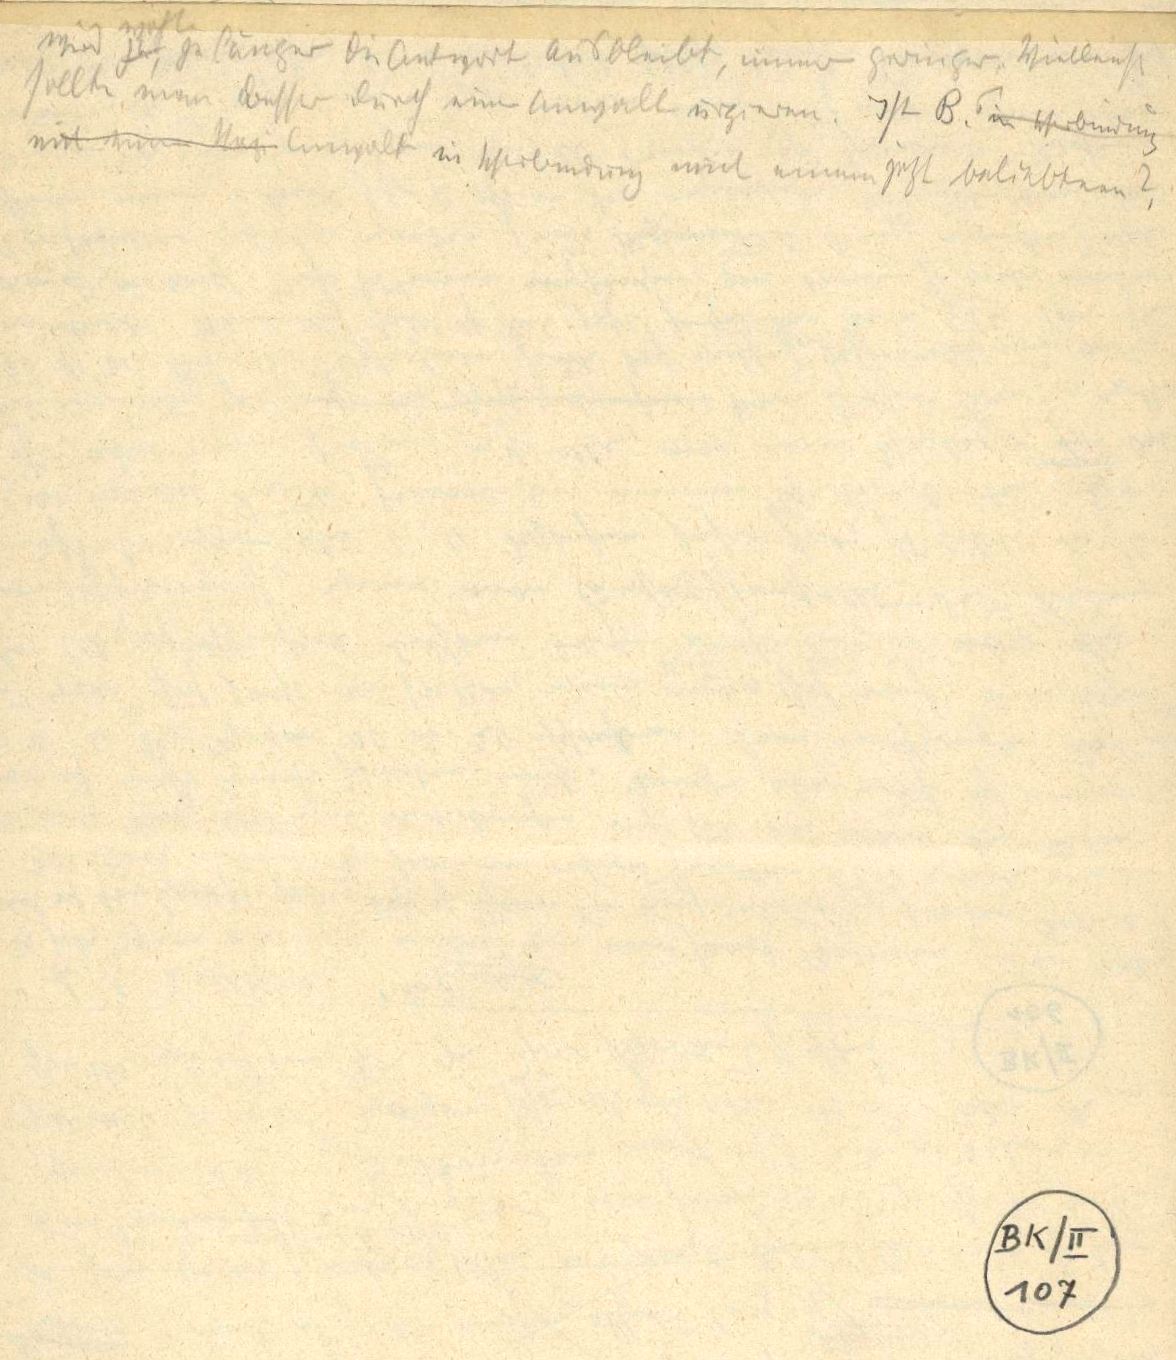 wohl
wird ja, je länger die Antwort ausbleibt, immer geringer. Vielleicht
sollte man besser durch einen Anwalt urgieren. Ist B. in Verbindung
mit einem Nazi Anwalt in Verbindung mit einem jetzt beliebten?
BK/II
107